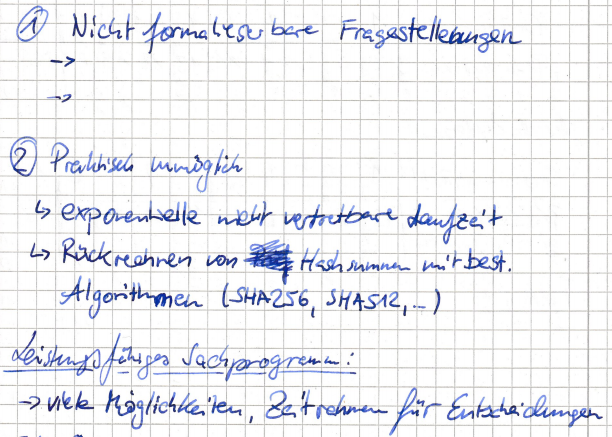 ① Nicht formalisierbare Fragestellungen
->
->
② Praktisch unmöglich
↳ exponentielle nicht vertretbare Laufzeit
↳ Rückrechnen von Hashsummen mit best.
Algorithmen (SHA256, SHA512, ...)
Leistungsfähiges Sachprogramm:
-> viele Möglichkeiten, Zeitrahmen für Entscheidungen